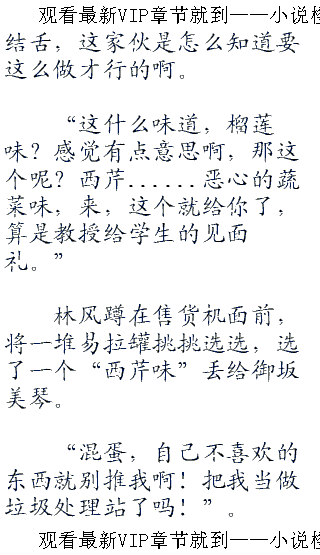 观看最新VIP章节就到——小说检
结舌，这家伙是怎么知道要
这么做才行的啊。
“这什么味道，榴莲
味？感觉有点意思啊，那这
个呢？西芹......恶心的蔬
菜味，来，这个就给你了，
算是教授给学生的见面
礼。”
林风蹲在售货机面前，
将一堆易拉罐挑挑选选，选
了一个“西芹味”丢给御坂
美琴。
“混蛋，自己不喜欢的
东西就别推我啊！把我当做
垃圾处理站了吗！”。
观看最新VIP章节就到——小说检